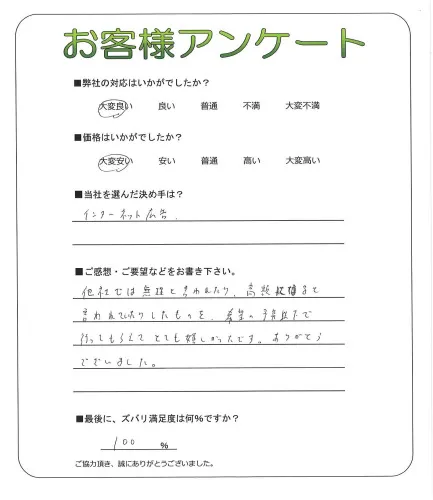 お客様アンケート
■弊社の対応はいかがでしたか？
大変良い 良い 普通 不満 大変不満
■価格はいかがでしたか？
大変安い 安い 普通 高い 大変高い
■当社を選んだ決め手は？
インターネット広告.
■ご感想・ご要望などをお書き下さい。
他社では無理と言われたり、高額
言われていたりしたものを、希望の予算以下で
行ってもらえて とても嬉しかったです。ありがとう
ございました。
■最後に、ズバリ満足度は何%ですか？
100 %
ご協力頂き、誠にありがとうございました。